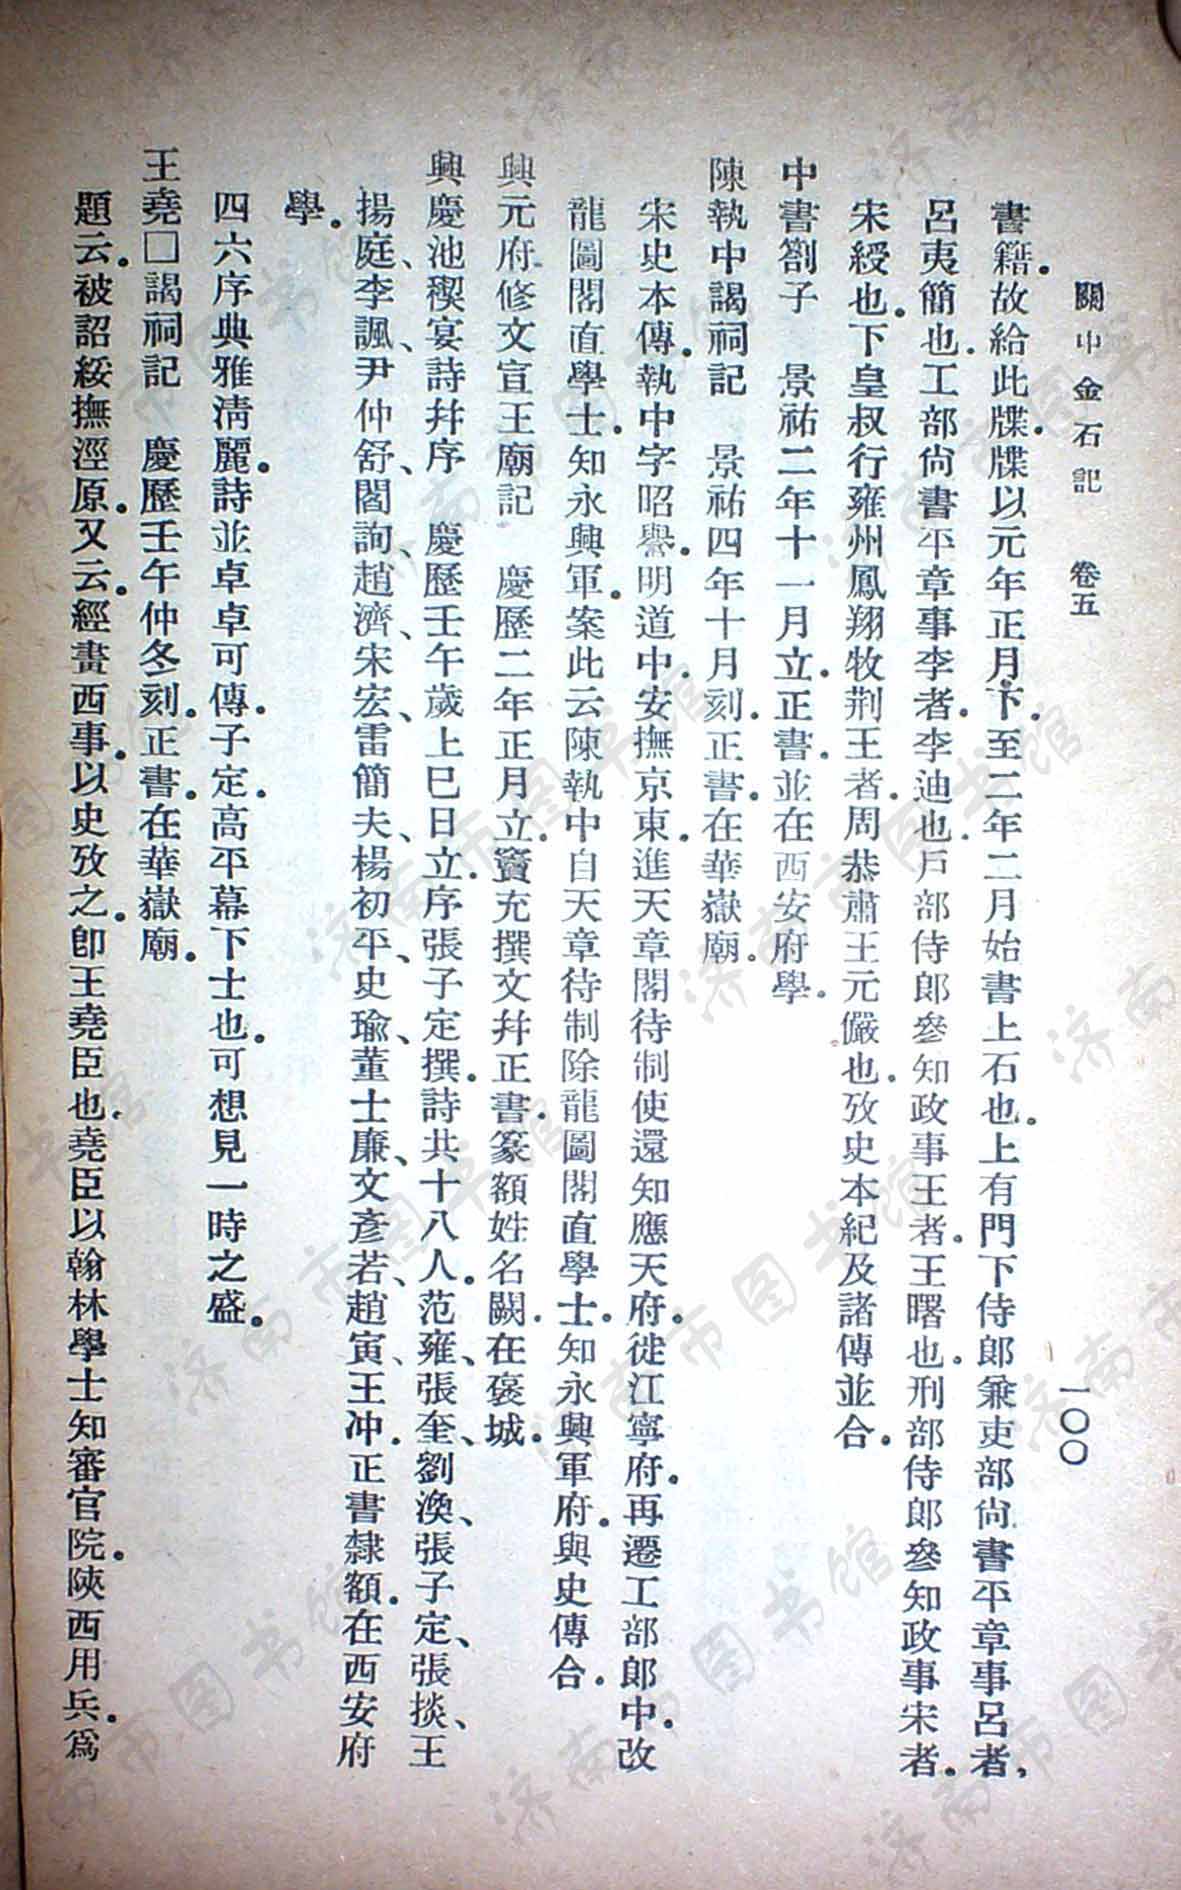 關中金石記 卷五 一〇〇
書籍。故給此牒。牒以元年正月下。至二年二月始書上石也。上有門下侍郎兼吏部尚書平章事呂者，
呂夷簡也。工部尚書平章事李者。李迪也。戶部侍郎參知政事王者。王曙也。刑部侍郎參知政事宋者。
宋綬也。下皇叔行雍州鳳翔牧荆王者。周恭肅王元儼也。攷史本紀及諸傳並合。
中書劄子 景祐二年十一月立。正書。並在西安府學。
陳執中謁祠記 景祐四年十月刻。正書。在華嶽廟。
宋史本傳。執中字昭譽。明道中。安撫京東。進天章閣待制。使還知應天府。徙江寧府。再遷工部郎中。改
龍圖閣直學士。知永興軍。案此云陳執中自天章待制除龍圖閣直學士。知永興軍府。與史傳合。
興元府修文宣王廟記 慶歷二年正月立。竇充撰文幷正書。篆額姓名闕。在褒城。
興慶池禊宴詩幷序 慶歷壬午歲上巳日立。序張子定撰。詩共十八人。范雍、張奎、劉渙、張子定、張掞、王
揚庭、李諷、尹仲舒、閻詢、趙濟、宋宏、雷簡夫、楊初平、史瑜、董士廉、文彥若、趙寅、王冲。正書隸額。在西安府
學。
四六序典雅淸麗。詩並卓卓可傳。子定。高平幕下士也。可想見一時之盛。
王堯□謁祠記 慶歷壬午仲冬刻。正書。在華嶽廟。
題云。被詔綏撫涇原。又云。經畫西事。以史攷之。卽王堯臣也。堯臣以翰林學士知審官院。陝西用兵。爲
济南市图书馆